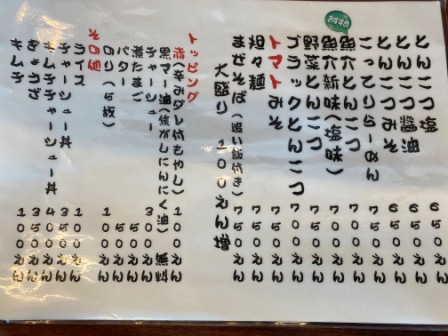 とんこつ塩 650えん
とんこつ醤油 650えん
とんこつみそ 650えん
こってりらーめん 750えん
おすすめ
魚介とんこつ 750えん
魚介新味(塩味) 750えん
野菜とんこつ 750えん
ブラックとんこつ 750えん
トマトみそ 750えん
坦々麺 750えん
まぜそば(追い飯付き) 750えん
大盛り 100えん増
トッピング
(辛みダレ付もやし) 100えん
黒マー油(焦がしにんにく油) 無料
チャーシュー 300えん
煮たまご
バター
のり(5枚) 100えん
その他
ライス 100えん
チャーシュー丼 350えん
キムチチャーシュー丼 400えん
ぎょうざ 350えん
キムチ 100えん